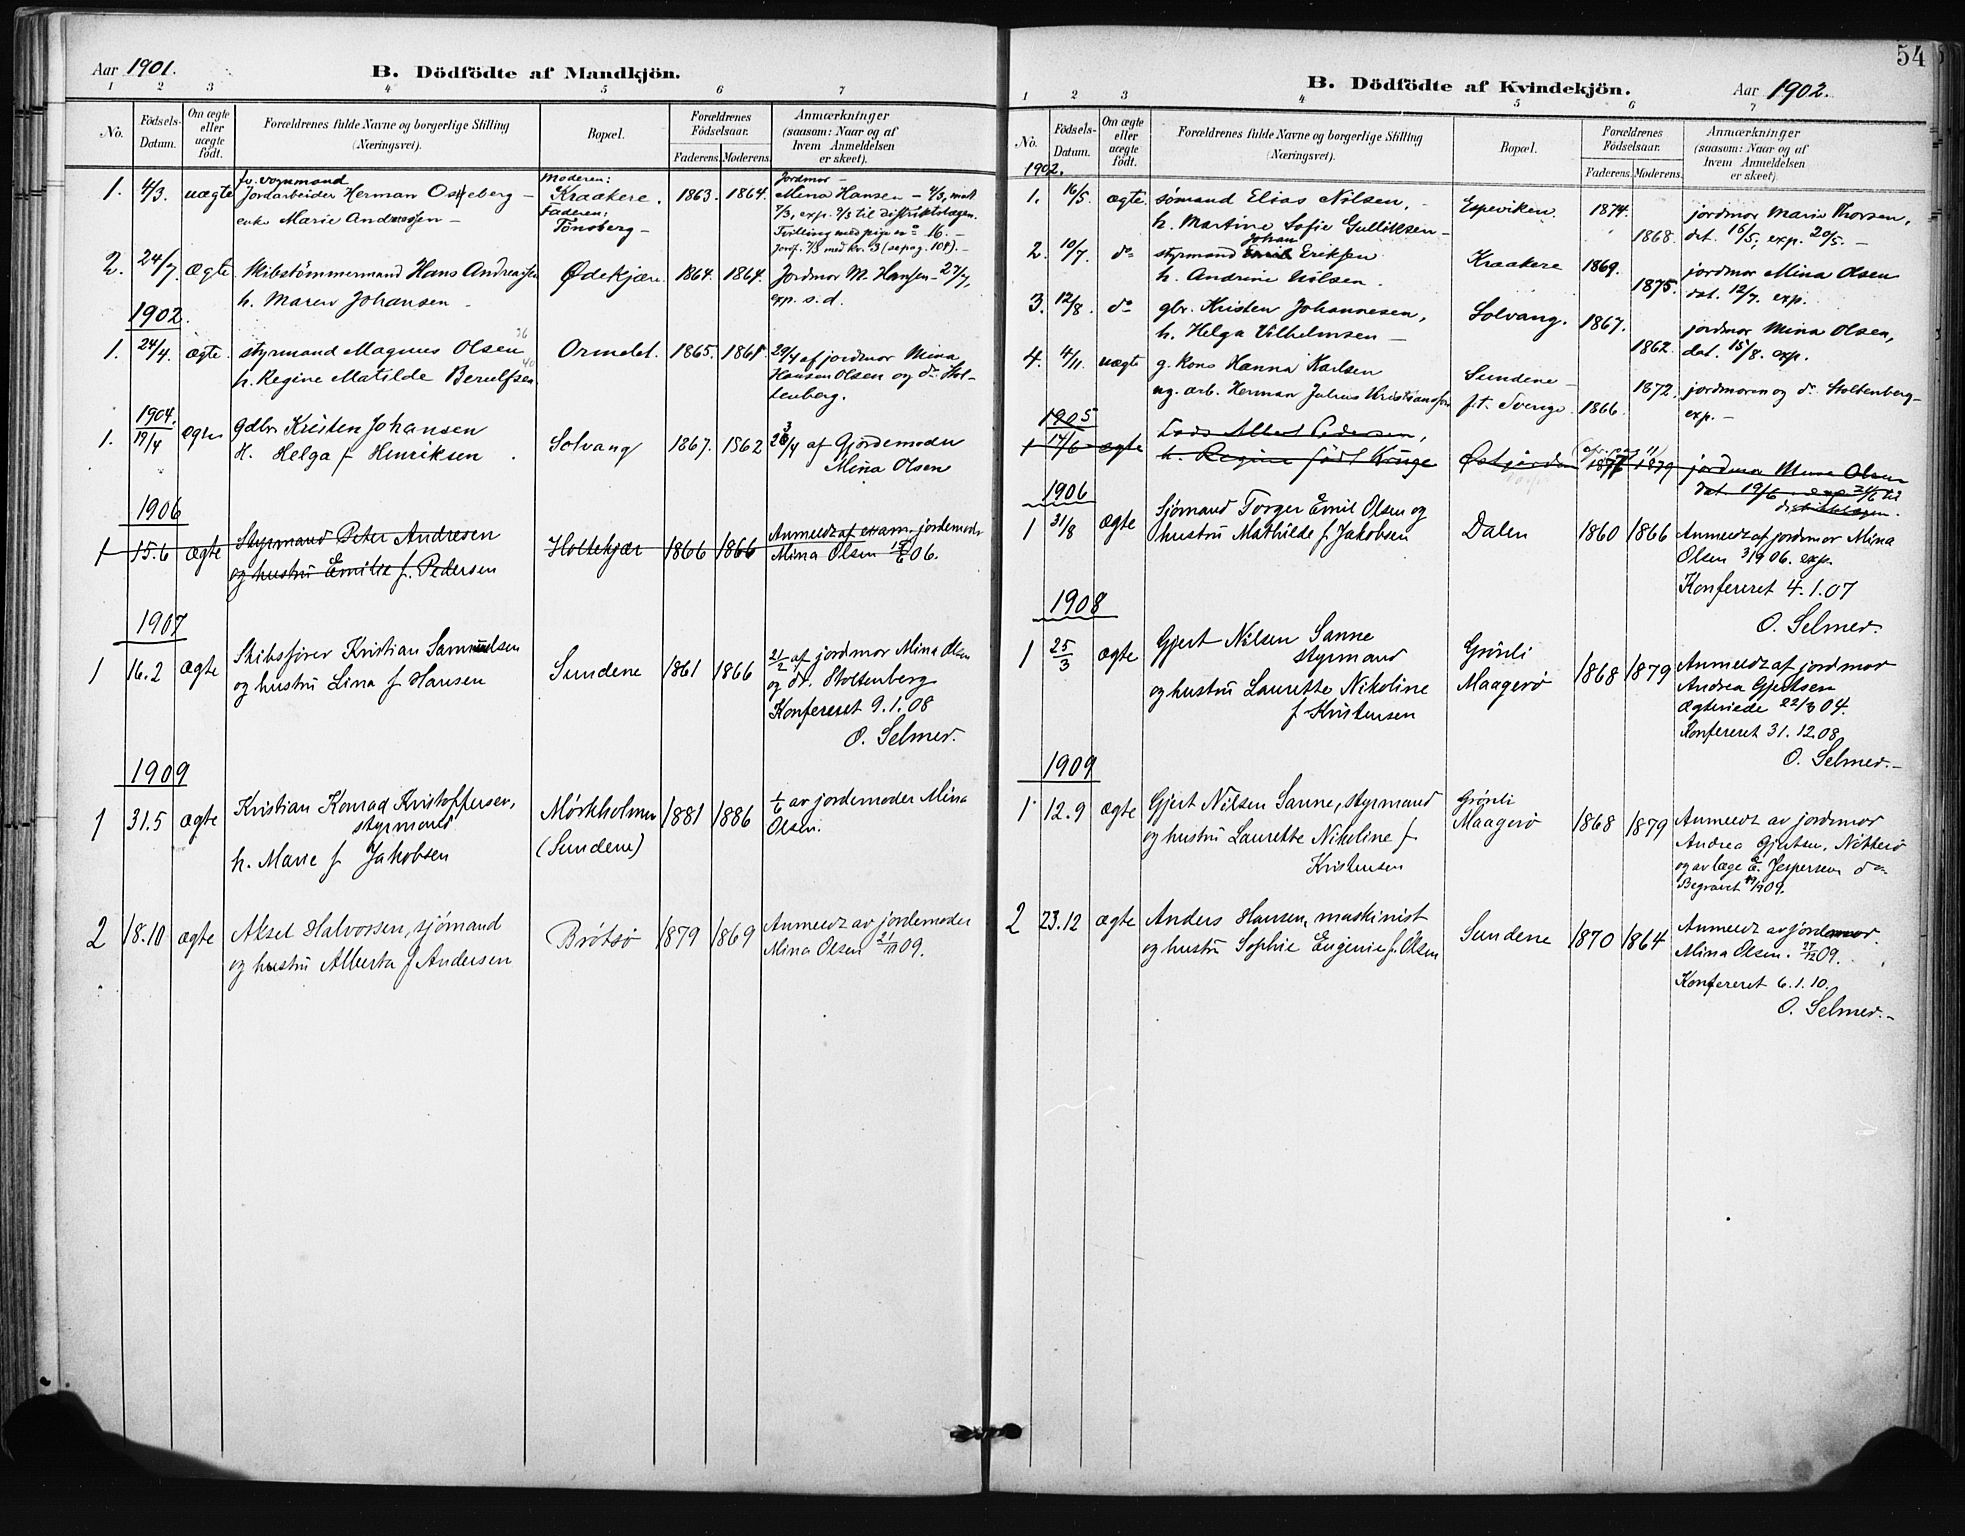 Aar 1901.
B. Dödfödte af Mandkjön.
1 2 3 4 5 6 7
No. Födsels-Datum. Om ægte eller uægte födt. Forældrenes fulde Navne og borgerlige Stilling (Næringsvei). Bopæl. Forældrenes Födselsaar. Faderens. Moderens. Anmærkninger (saasom: Naar og af hvem Anmeldelsen er skeet).
fv. vognmand Moderen: Jordmor –
1. 4/3. uægte Jordarbeider Herman Oseberg – Kraakere. 1863. 1864. Mina Hansen – 4/3, mdt
enke Marie Andreassen – Faderen: 7/3, exp. 7/3 til distriktslægen.
Tönsberg – Tvilling med pige nº 16. –
2. 24/7. ægte Skibstömmermand Hans Andreassen Ødekjær. 1864. 1864. Jordmor M. Hansen – 27/7,
h. Maren Johansen – exp. s.d.
1902.
1. 24/4. ægte. styrmand Magnus Olsen 26 Ormelet. 1865. 1861. 29/4 af jordmor Mina
h. Regine Matilde Berulfsen 40 Hansen Olsen og dr. Stol-
tenberg.
1904.
1. 17/4 ægte gdbr Kristen Johansen Solvang 1867. 1862 23/4 af Gjordemoder
H. Helga f Henriksen. Mina Olsen
1906
1 15.6 ægte Styrmand Peter Andresen Holtekjær 1866 1866 Anmeldt af exam. jordemoder
og hustru Emilie f. Pedersen Mina Olsen 06.
1907
1 16.2 ægte Skibsfører Kristian Samuelsen Sundene 1861 1866 21/2 af jordmor Mina Olsen
og hustru Lina f Hansen og dr. Stoltenberg
Konfereret 9.1.08
O. Selmer.
1909
1 31.5 ægte Kristian Konrad Kristoffersen, Mørkholmen 1881 1886 1/6 av jordemoder Mina
styrmand Olsen.
h. Marie f Jakobsen (Sundene)
2 18.10 ægte Aksel Halvorsen, sjømand Brøtsø 1879 1869 Anmeldt av jordemoder
og hustru Alberta f Andersen Mina Olsen 09.
54
B. Dödfödte af Kvindekjön.
Aar 1902.
1 2 3 4 5 6 7
No. Födsels-Datum. Om ægte eller uægte födt. Forældrenes fulde Navne og borgerlige Stilling (Næringsvei). Bopæl. Forældrenes Födselsaar. Faderens. Moderens. Anmærkninger (saasom: Naar og af hvem Anmeldelsen er skeet).
1902.
1. 16/5. ægte. sømand Elias Nilsen, Espeviken. 1874. jordmor Marie Thorsen,
h. Martine Sofie Gulliksen – 1868. dat. 16/5, exp. 20/5. –
2. 10/7. dº styrmand Johan Eriksen Kraakere 1869. jordmor Mina Olsen
h. Andrine Nilsen. 1875. dat. 12/7. exp.
3. 12/8. dº gbr. Kristen Johannesen, Solvang. 1867. jordmor Mina Olsen,
h. Helga Vilhelmsen – 1862. dat. 15/8. exp.
4. 4/11. uægte g. kone Hanna Karlsen Sundene – 1872. jordmoren og dr. Stoltenberg –
ug. arb. Herman Julius Kristiansen f.t. Sverige. 1866. exp. –
1905
1 17/6 ægte Lods Albert Pedersen, 1877 1879 jordmor Mina Olsen
h. Regine född Kruge dat. 19/6 exp 24/6 til
distriktslægen.
1906
1 31/8 ægte Sjømand Torger Emil Olsen og Dalen 1860 1866 Anmeldt af jordmor Mina
hustru Mathilde f. Jakobsen Olsen 06. exp.
Konfereret 4.1.07
O. Selmer.
1908
1 25/3 ægte Gjert Nilsen Sanne Grønli 1868 1879 Anmeldt af jordmor
styrmand Andrea Gjertsen
og hustru Laurette Nikoline Maagerø Ægteviede 22/3 04.
f Kristensen Konfereret 31.12.08
O. Selmer. –
1909
1 12.9 ægte Gjert Nilsen Sanne, styrmand Grønli 1868 1879 Anmeldt av jordmor
og hustru Laurette Nikoline f Maagerø Andrea Gjertsen, Nötterö
Kristensen og av læge E. Jespersen dº
Begravet 1909.
2 23.12 ægte Anders Hansen, maskinist Sundene 1870 1864 Anmeldt av jordemor
og hustru Sophie Eugenie f. Olsen Mina Olsen. 27/12 09.
Konfereret 6.1.10.
O. Selmer. –